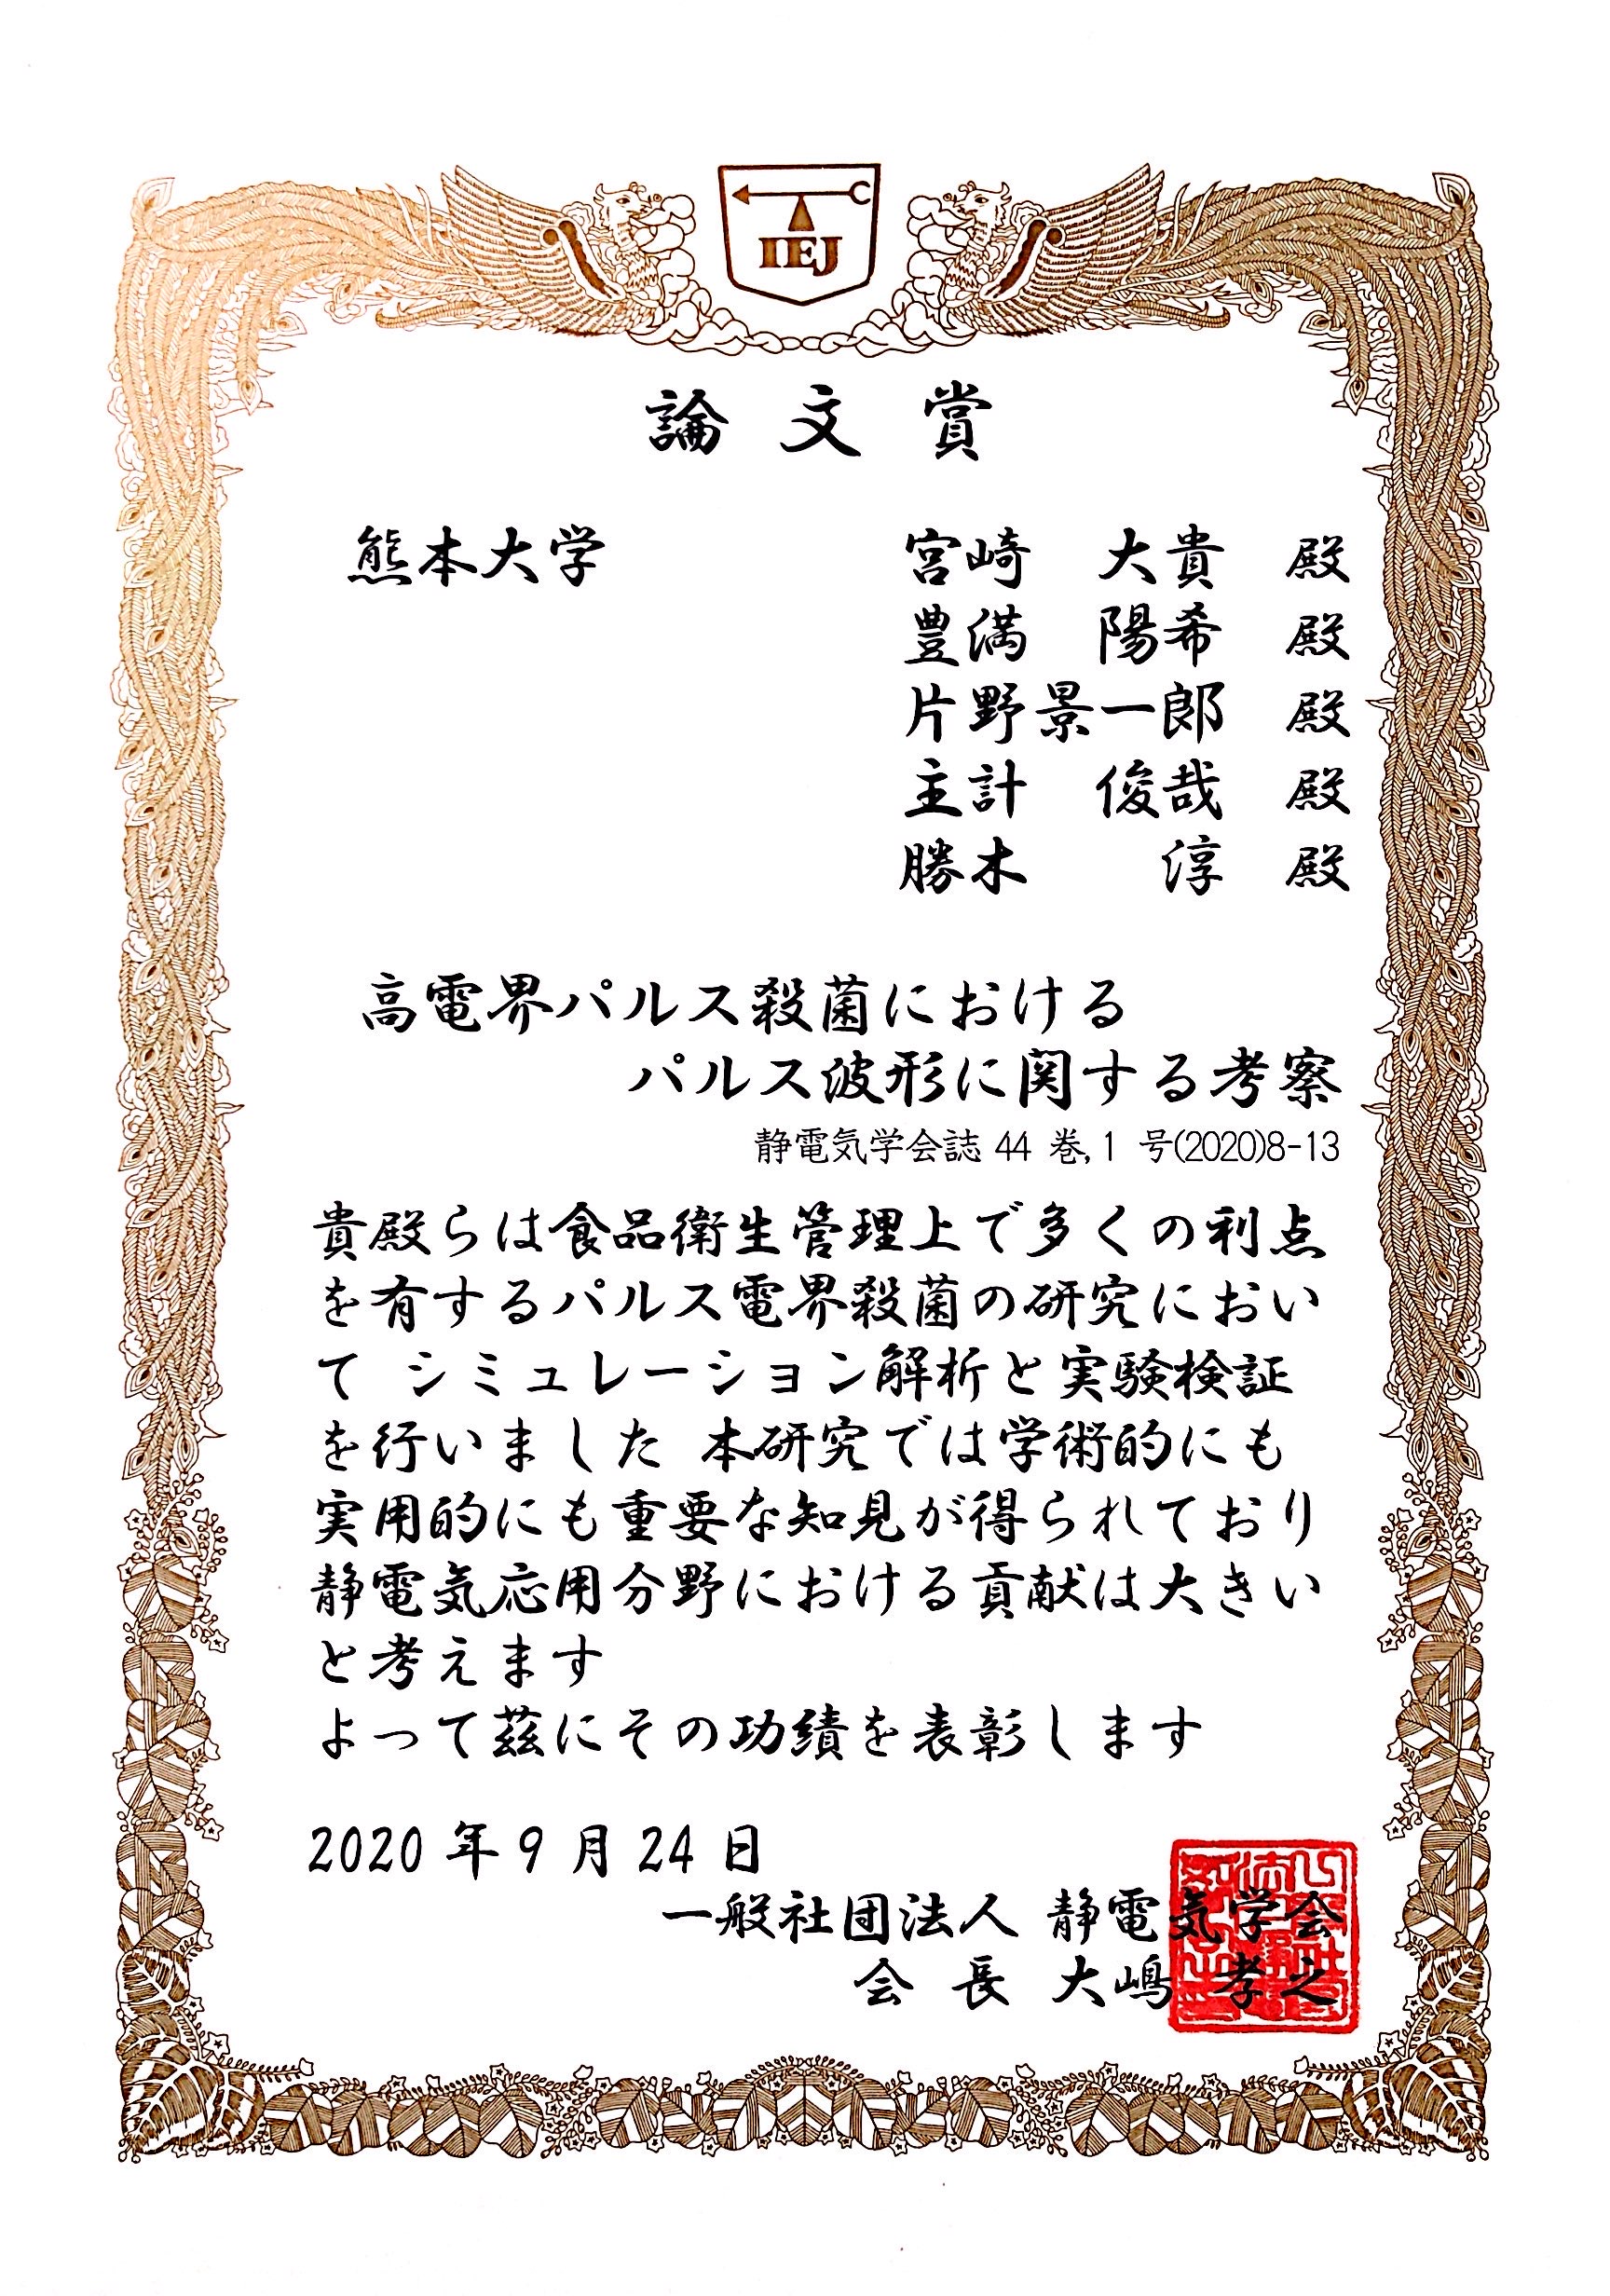 IEJ
論文賞
熊本大学 宮崎 大貴 殿
豊満 陽希 殿
片野景一郎 殿
主計 俊哉 殿
勝木 淳 殿
高電界パルス殺菌における
パルス波形に関する考察
静電気学会誌 44 巻, 1 号(2020)8-13
貴殿らは食品衛生管理上で多くの利点
を有するパルス電界殺菌の研究におい
て シミュレーション解析と実験検証
を行いました 本研究では学術的にも
実用的にも重要な知見が得られており
静電気応用分野における貢献は大きい
と考えます
よって茲にその功績を表彰します
2020 年 9 月 24 日
一般社団法人 静電気学会
会 長 大嶋 孝之